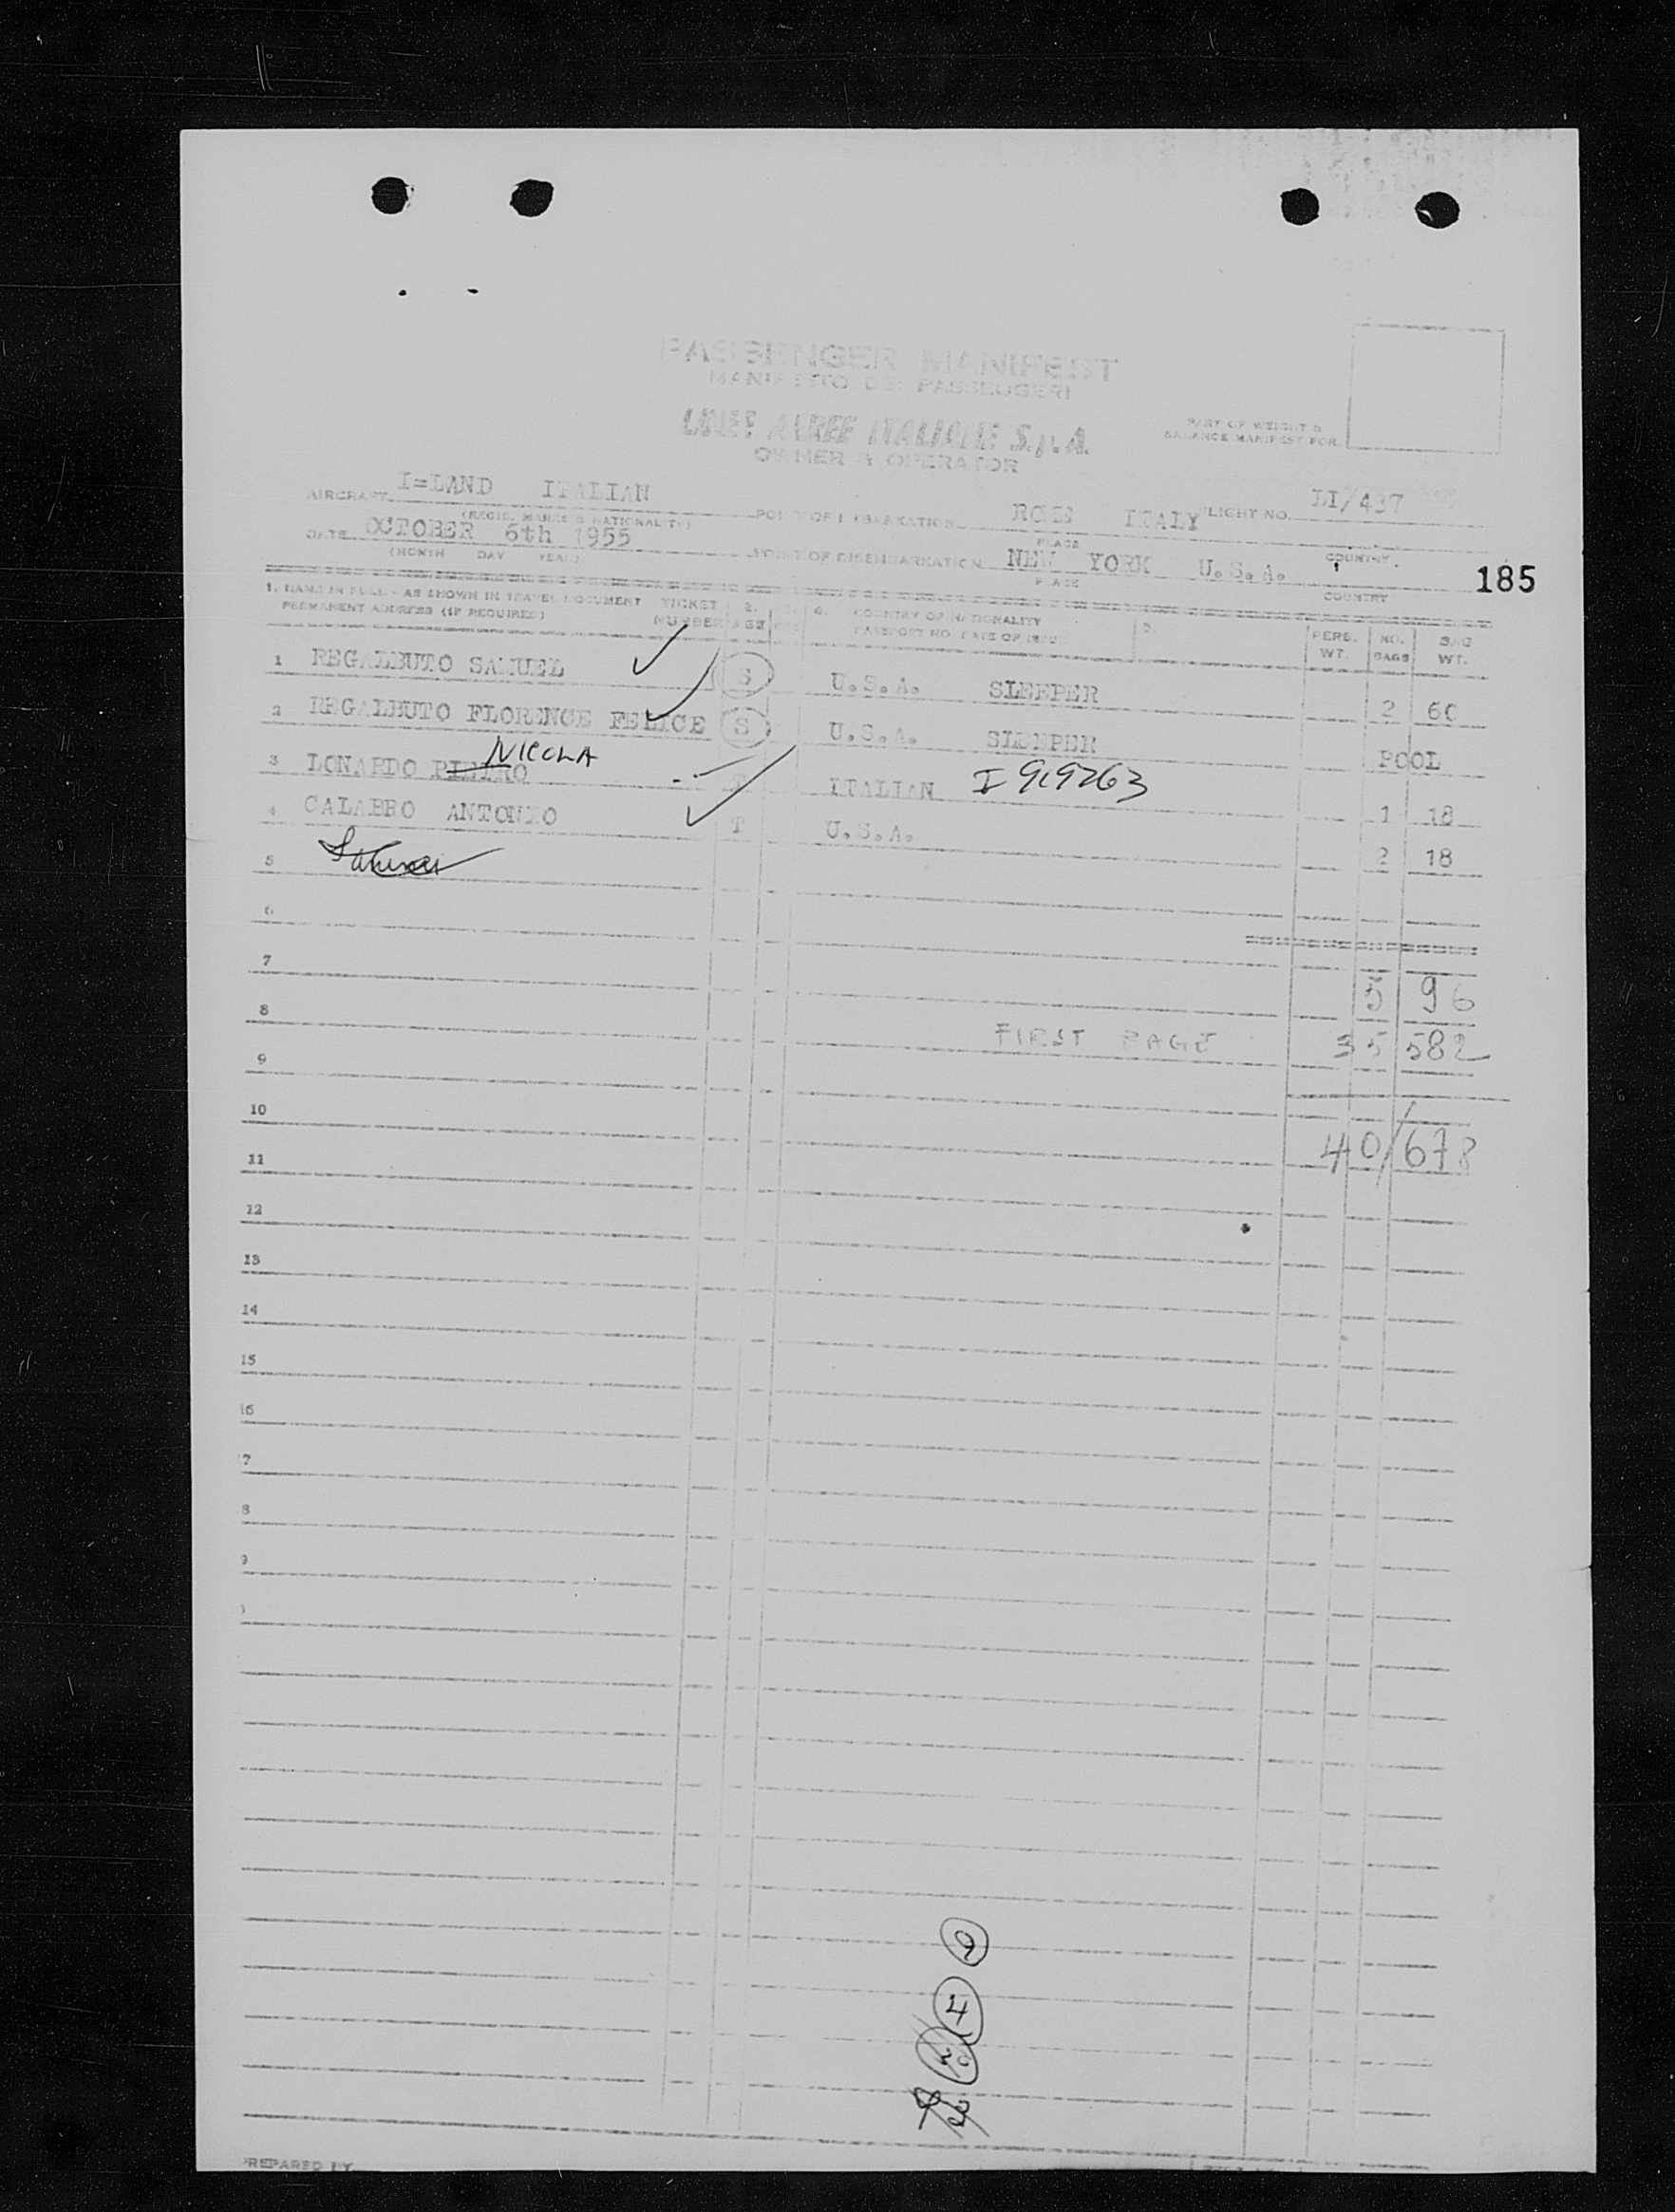 PASSENGER MANIFEST
MANIFESTO DEI PASSEGGERI
LINEE AEREE ITALIANE S.p.A.
OWNER & OPERATOR
PART OF WEIGHT &
BALANCE MANIFEST FOR
AIRCRAFT I=LAND ITALIAN
(REGIS. MARKS & NATIONALITY)
POINT OF EMBARKATION ROME ITALY
PLACE COUNTRY
FLIGHT NO. LI/437
DATE OCTOBER 6th 1955
(MONTH DAY YEAR)
POINT OF DISEMBARKATION NEW YORK U.S.A.
PLACE COUNTRY
185
1. NAME IN FULL - AS SHOWN IN TRAVEL DOCUMENT TICKET 2. 4. COUNTRY OF NATIONALITY PERS. NO. BAG
PERMANENT ADDRESS (IF REQUIRED) NUMBER AGE PASSPORT NO. WT. BAGS WT.
1 REGALBUTO SAMUEL S U.S.A. SLEEPER 2 60
2 REGALBUTO FLORENCE FELICE S U.S.A. SLEEPER POOL
NICOLA
3 LONARDO PIETRO T ITALIAN I 919263 1 18
4 CALABRO ANTONIO T U.S.A. 2 18
5
6
7
5 96
8
FIRST PAGE 35 582
9
10
40/678
11
12
13
14
15
16
7
8
9
9
4
PREPARED BY